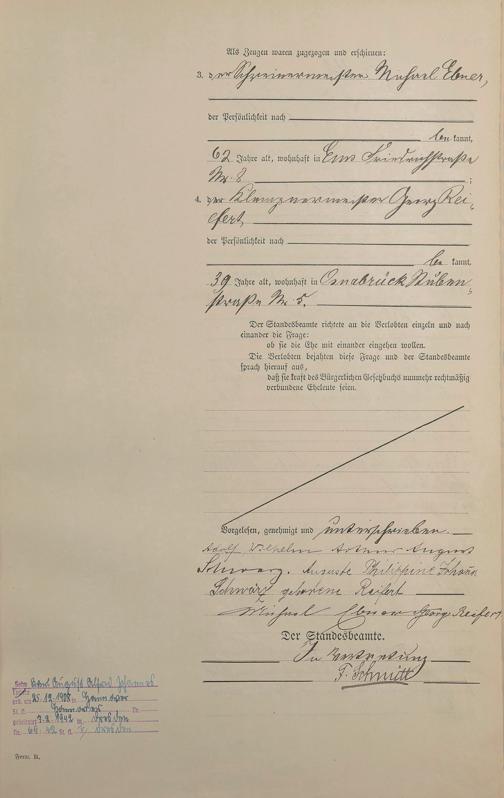 Als Zeugen waren zugezogen und erschienen:
3. der Schreinermeister Michael Ebner,
der Persönlichkeit nach
be kannt,
62 Jahre alt, wohnhaft in Ems Friedrichstraße
Nr. 8 ;
4. der Klempnermeister Georg Rei-
fert,
der Persönlichkeit nach
be kannt,
39 Jahre alt, wohnhaft in Osnabrück Stüben-
straße Nr. 5.
Der Standesbeamte richtete an die Verlobten einzeln und nach
einander die Frage:
ob sie die Ehe mit einander eingehen wollen.
Die Verlobten bejahten diese Frage und der Standesbeamte
sprach hierauf aus,
daß sie kraft des Bürgerlichen Gesetzbuchs nunmehr rechtmäßig
verbundene Eheleute seien.
Vorgelesen, genehmigt und unterschrieben.
Adolf Wilhelm Arthur August
Schwarz. Auguste Philippine Johanna
Schwarz geborene Reifert
Michael Ebner Georg Reifert
Der Standesbeamte.
In Vertretung
F. Schmidt
Sohn August Alfred Johannes
geb. am 25.12.1908 in Hannover
St. A. Hannover Nr.
geheiratet 3.2.1942 in Dresden
Nr. 66/42 St. A. Dresden
Form. B.